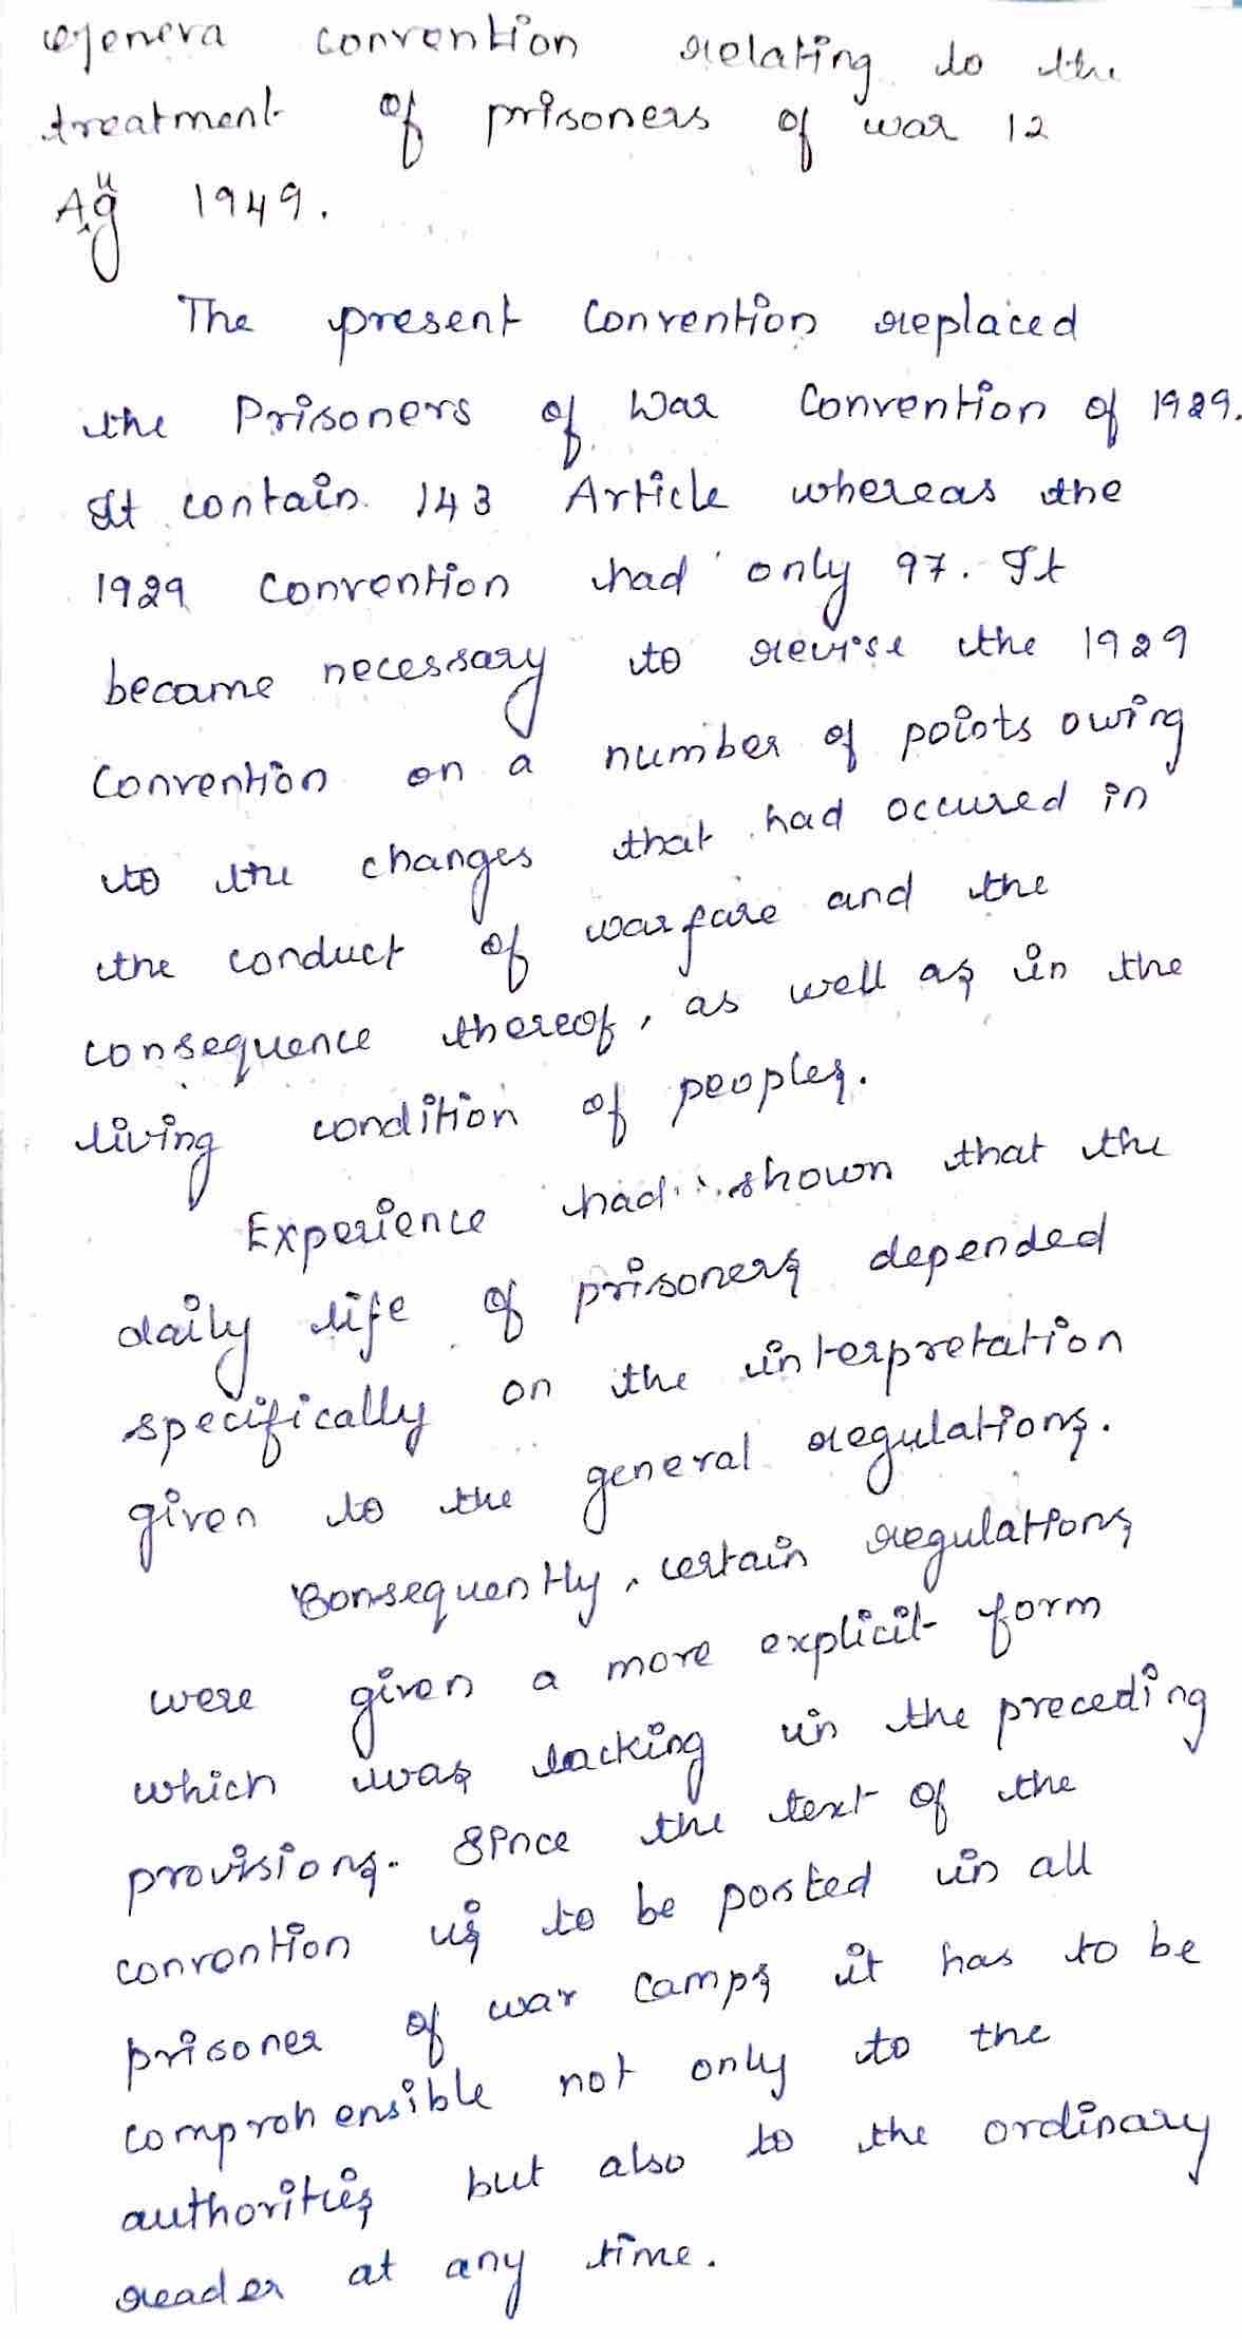 Geneva convention relating to the
treatment of prisoners of war 12
Aug 1949.
The present Convention replaced
the Prisoners of War Convention of 1929.
It contain 143 Article whereas the
1929 Convention had only 97. It
became necessary to revise the 1929
Convention on a number of points owing
to the changes that had occured in
the conduct of warfare and the
consequence thereof, as well as in the
living condition of peoples.
Experience had shown that the
daily life of prisoners depended
specifically on the interpretation
given to the general regulations.
Consequently, certain regulations
were given a more explicit form
which was lacking in the preceding
provisions. Since the text of the
convention is to be posted in all
prisoner of war camps it has to be
comprehensible not only to the
authorities but also to the ordinary
reader at any time.